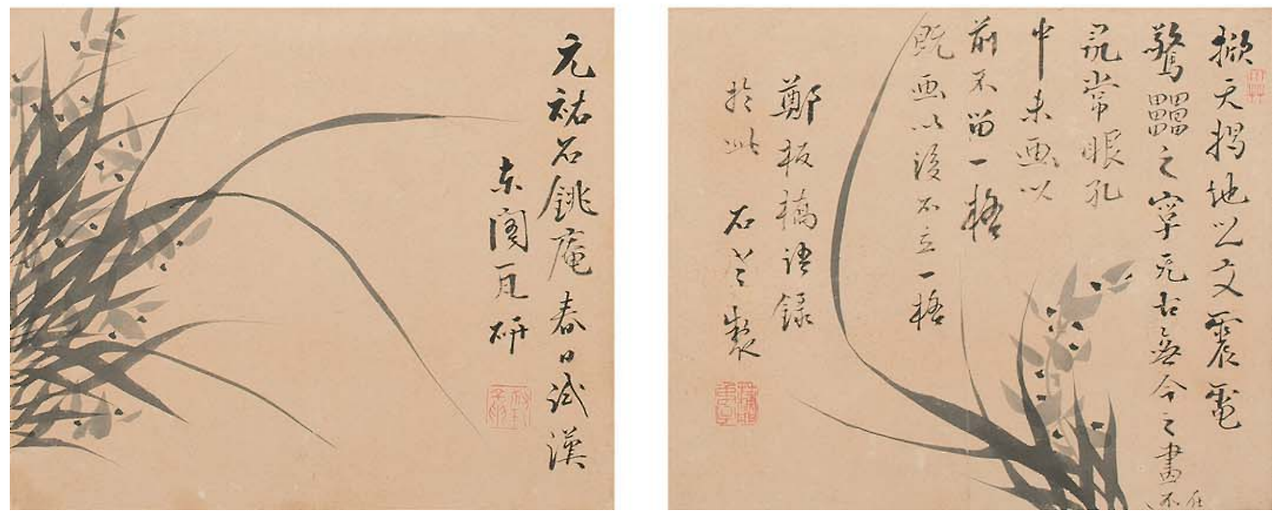 元祐石銚庵春日試漢
東閣瓦研
掀天揭地之文震電
驚𤴐之字无古無今之畫不在
尋常眼孔
中未画以
前不留一格
既画以後不立一格
鄭板橋語録
於此 石